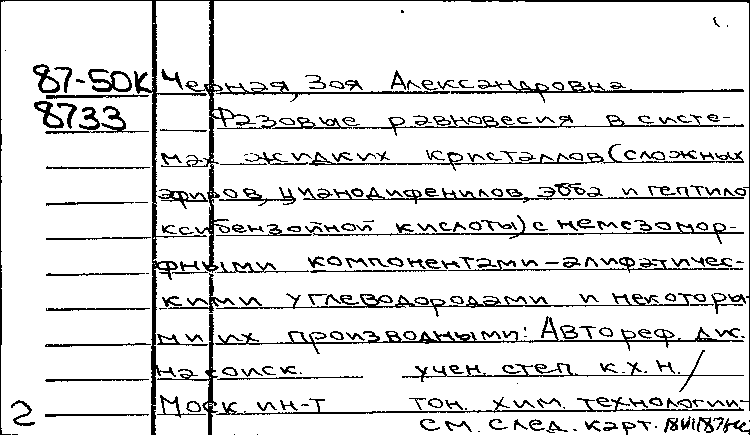 87-50К Черная, Зоя Александровна
8733 Фазовые равновесия в систе-
мах жидких кристаллов (сложных
эфиров, цианодифенилов, эбба и гептило
ксибензойной кислоты) с немезомор-
фными компонентами - алифатичес-
кими углеводородами и некоторы
ми их производными: Автореф. дис.
на соиск. учен. степ. к.х.н. /
Моск. ин-т тон. хим. технологии-
2 см. след. карт.